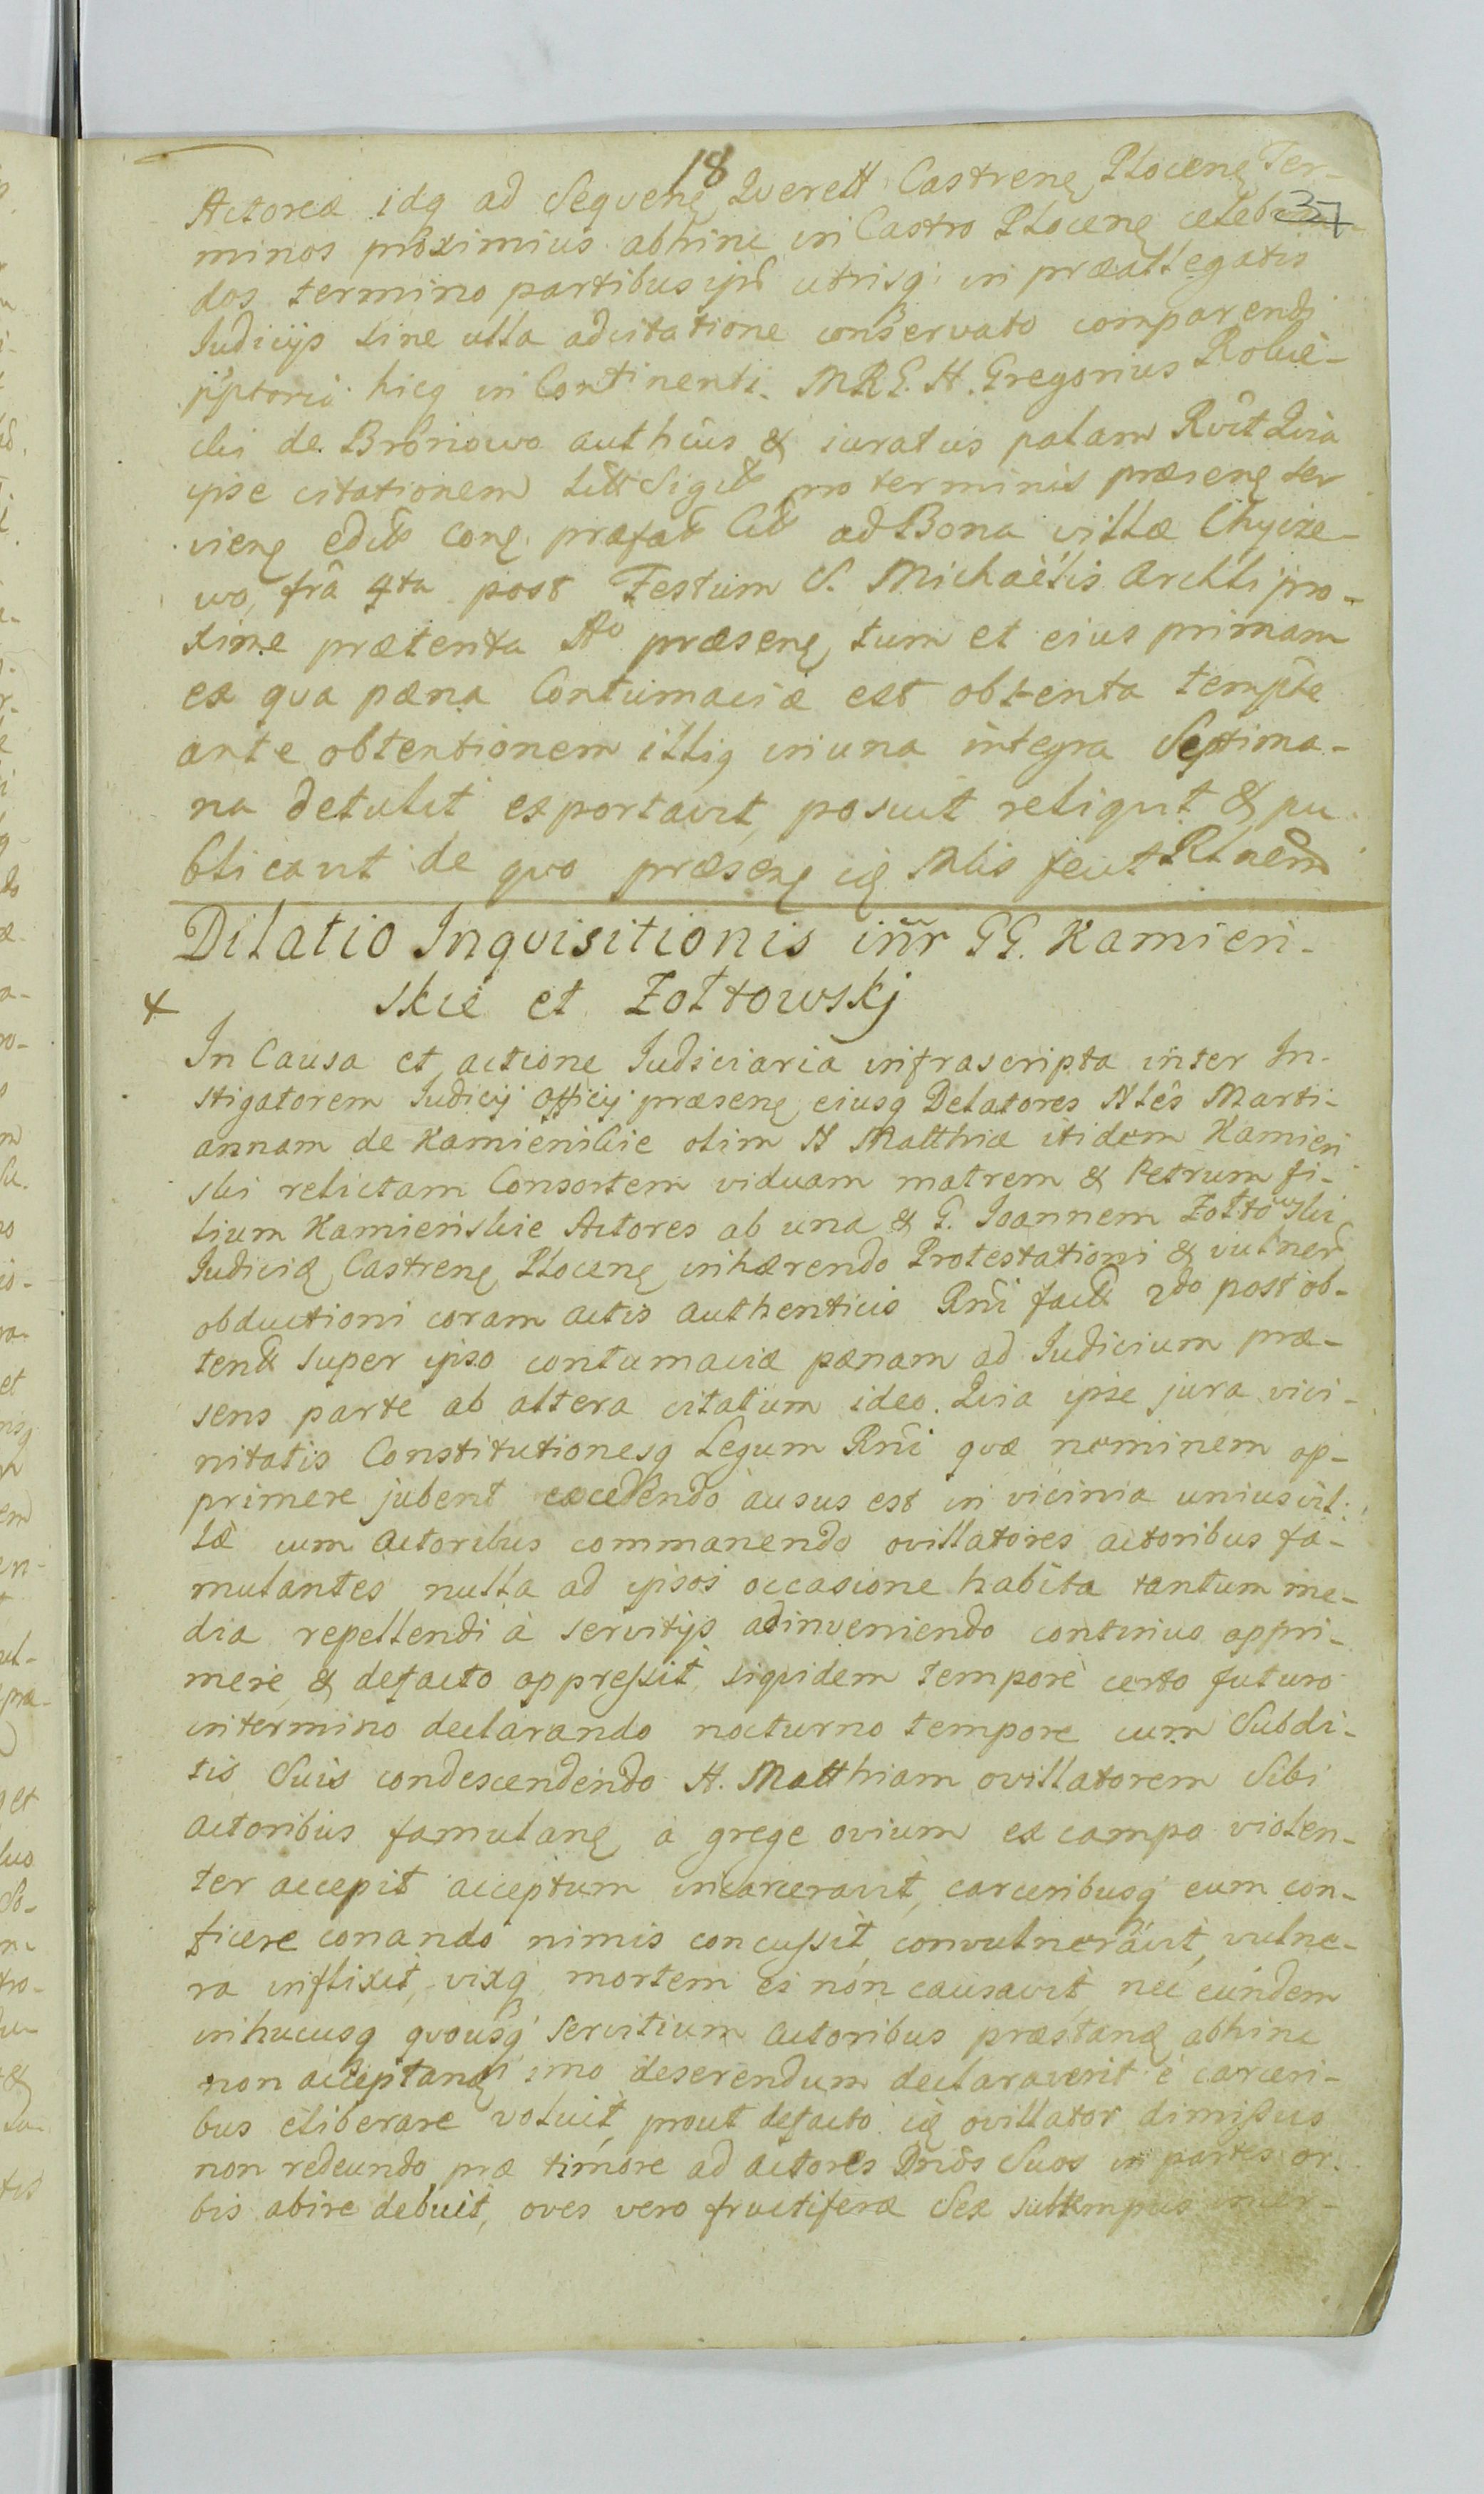 18
37
Actoreæ idq ad Sequenę Querell Castrenę Plocenę Ter-
minos proximius abhinc in Castro Plocenę celebran-
dos termino partibus ipsˢ utrisq in præallegatis
Iudicijs sine ulla adcitatione conservato comparendi
hicq in Continenti. MRG. N. Gregorius
ski de Bronowo authûs & iuratus palam Rvit Quia
ipse citationem litt Sigill pro terminis præsenę ser
vienę edit conę præfat Cit ad Bona villæ Chycze-
wo, frâ 4ta post Festum S. Michaëlis Archlipro-
xime præterita Aº præsenę, tum et eius primam
ex qua pæna Contumaciæ est obtenta tempŕe
ante obtentionem illiq in una integra Septima-
na detulit exportavit, posuit reliquit & pu
blicavit de quo præsenę iq Mlis fecit Rlnem
Dilatio Inquisitionis inr̃ GG. Kamień-
skie et Zołtowskj
x
In Causa et actione Iudiciaria infrascripta inter In-
stigatorem Iudicij Officij præsenę eiusq Delatores Nlês Mari-
annam de Kamieńskie olim N Matthiæ itidem Kamień
ski relictam Consortem viduam matrem & Petrum fi-
lium Kamieńskie Actores ab una & G. Ioannem Zołtowski
Iudiciæ Castrenę Plocenę inhærendo Protestationi & vulner
obductioni coram actis authenticis Rñi fact 2do post ob-
tent super ipso contumaciæ pænam ad Iudicium præ-
sens parte ab altera citatum ideo. Quia ipse jura vici-
nitatis Constitutionesq Legum Rñi quæ neminem op-
primere jubent excedendo ausus est in vicinia unius vil-
læ cum actoribus commanendo ovillatores actoribus fa-
mulantes nulla ad ipsos occasione habita tantum me-
dia repellendi à servitijs adinveniendo continuo oppri-
mere & defacto oppressit, siquidem tempore certo futuro
in termino declarando nocturno tempore cum Subdi-
tis Suis condescendendo N. Matthiam ovillatorem Sibi
actoribus famulanę à grege ovium ex campo violen-
ter accepit acceptum incarceravit, carceribusq eum con-
ficere conando nimis concussit, convulneravit, vulne-
ra inflixit, vixq mortem ei non causavit, nec eundem
inhucusq quousq servitium actoribus præstanę abhinc
non acceptanę imo deserendum declaraverit è carceri-
bus eliberare voluit, prout defacto iq ovillator dimissus
non redeundo præ timore ad actores Dnôs Suos in partes or-
bis abire debuit, oves vero fructiferæ Sex subtempus